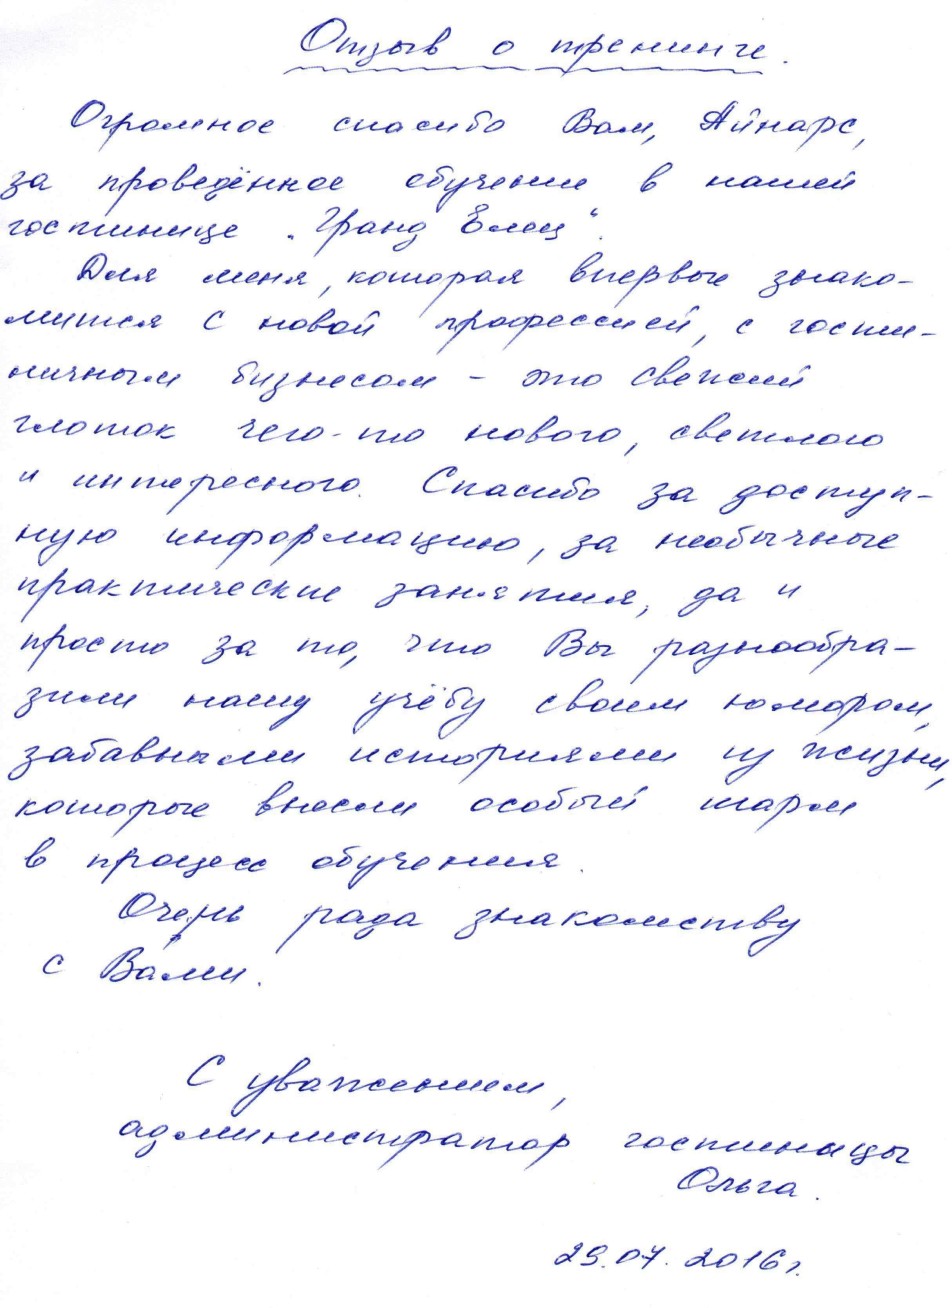 Отзыв о тренинге.
Огромное спасибо Вам, Айнарс,
за проведённое обучение в нашей
гостинице „Гранд Елец“.
Для меня, которая впервые знако-
мится с новой профессией, с гости-
ничным бизнесом – это свежий
глоток чего-то нового, светлого
и интересного. Спасибо за доступ-
ную информацию, за необычные
практические занятия, да и
просто за то, что Вы разнообра-
зили нашу учёбу своим юмором,
забавными историями из жизни,
которые внесли особый шарм
в процесс обучения.
Очень рада знакомству
с Вами.
С уважением,
администратор гостиницы
Ольга.
29.07.2016г.